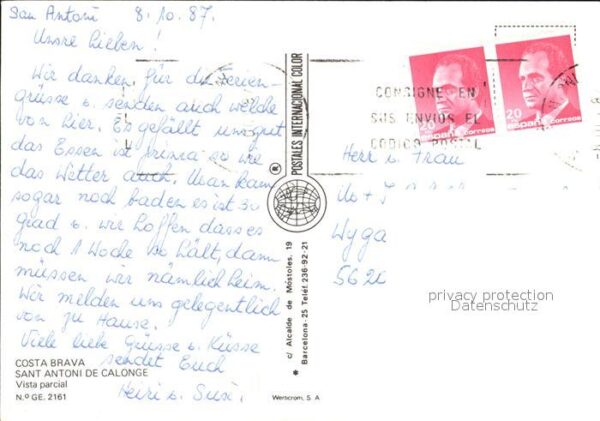 San Antoni 8.10.87.
Unsre Lieben!
Wir danken für die Ferien-
grüsse u. senden auch welche
von hier. Es gefällt uns gut
das Essen ist prima so wie
das Wetter auch. Man kann
sogar noch baden es ist 30
grad u. wir hoffen dass es
noch 1 Woche so hält, dann
müssen wir nämlich heim.
Wir melden uns gelegentlich
von zu Hause.
Viele liebe Grüsse u. Küsse
sendet Euch
Heiri u. Susi.
COSTA BRAVA
SANT ANTONI DE CALONGE
Vista parcial
N.º GE. 2161
POSTALES INTERNACIONAL COLOR
®
c/ Alcalde de Móstoles, 19
* Barcelona-25 Telf. 236-92-21
Werticrom, S. A
CONSIGNE EN
SUS ENVIOS EL
CODIGO POSTAL
20
España correos
20
España correos
Herr u. Frau
Wyga
562
privacy protection
Datenschutz